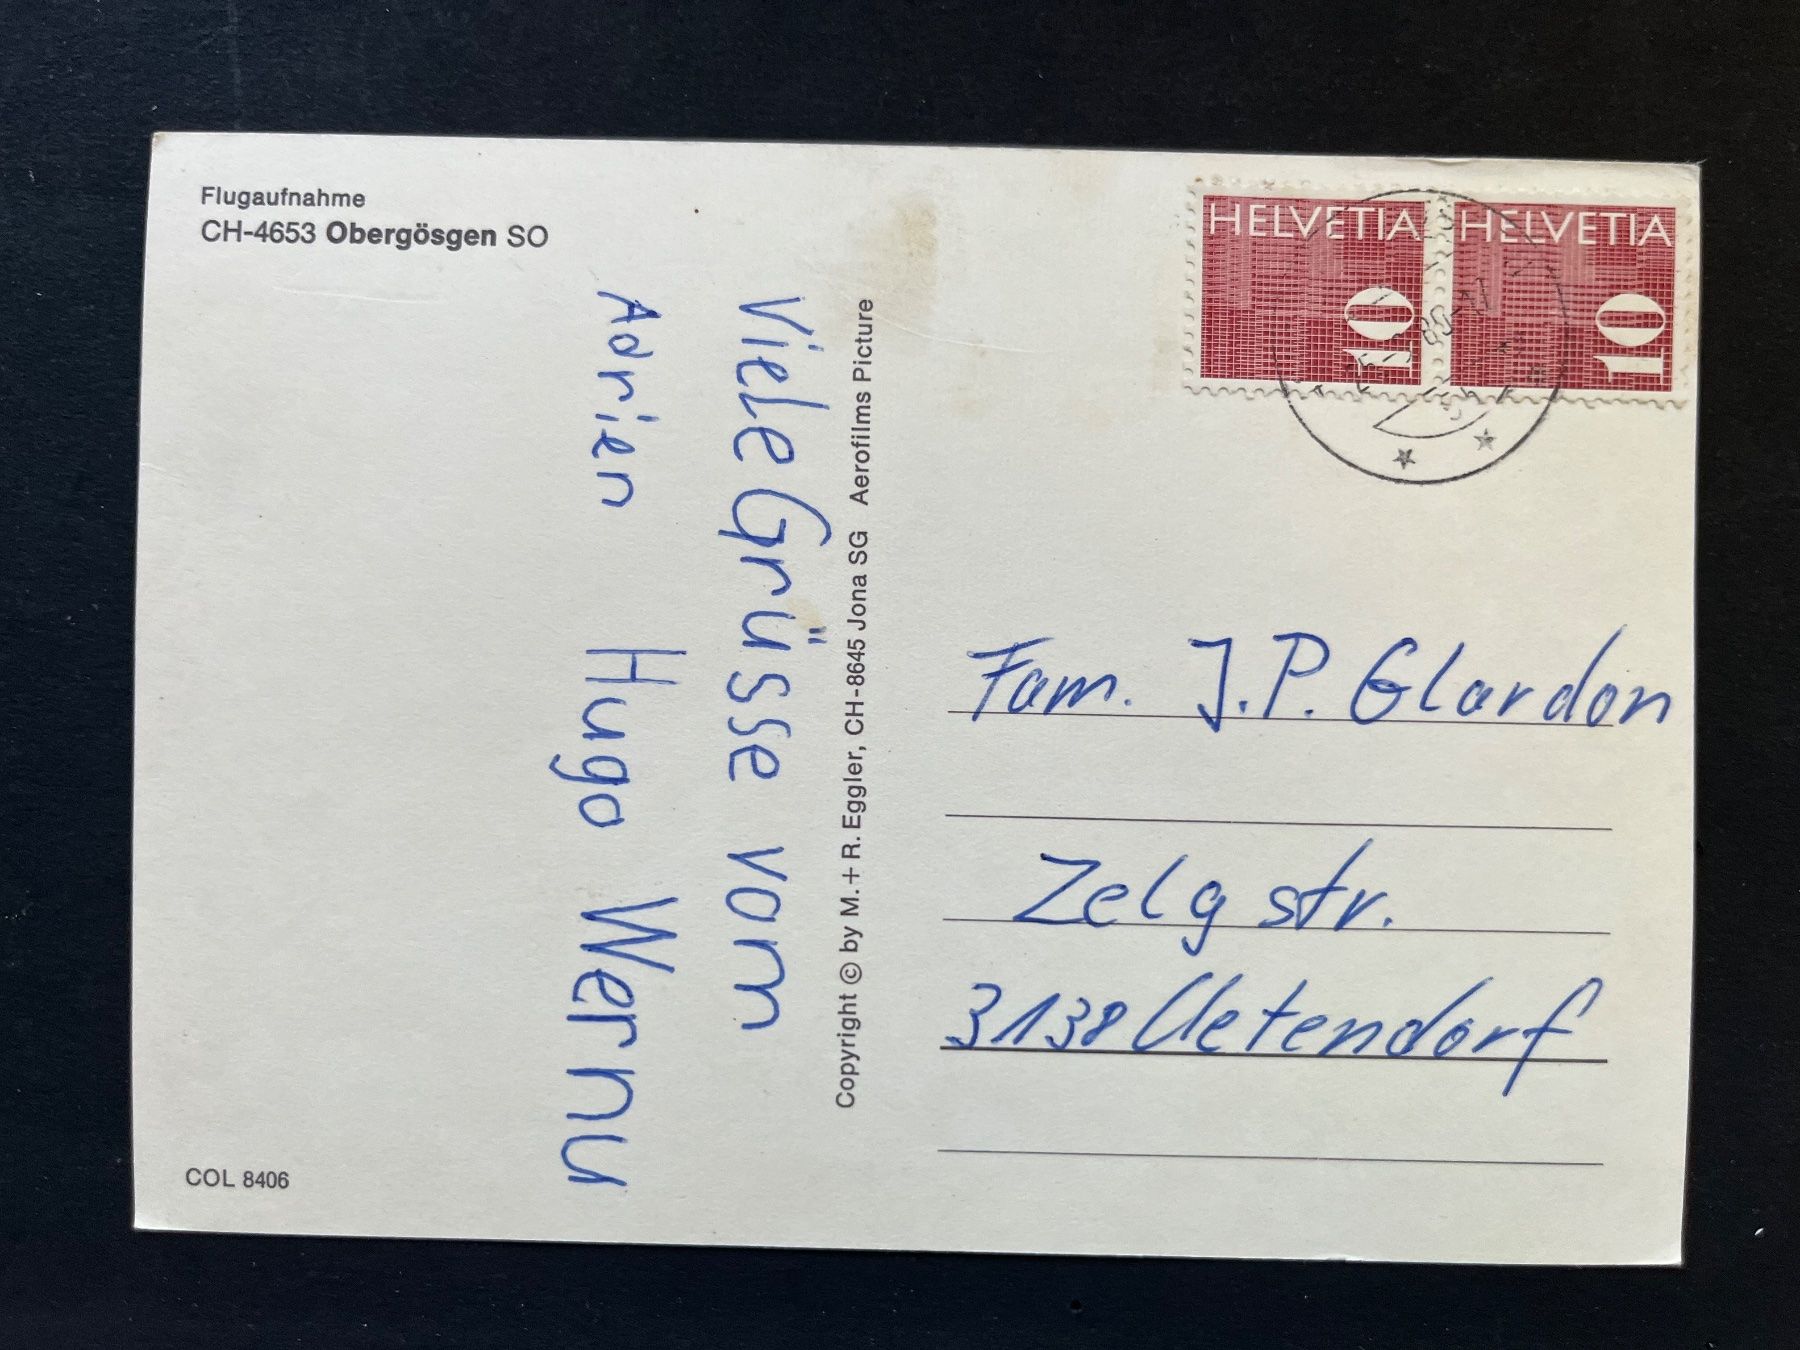 Flugaufnahme
CH-4653 Obergösgen SO
Viele Grüsse vom
Adrien Hugo Wernu
COL 8406
Copyright © by M.+ R. Eggler, CH-8645 Jona SG Aerofilms Picture
HELVETIA
10
HELVETIA
10
Fam. J.P. Glardon
Zelgstr.
3138 Uetendorf